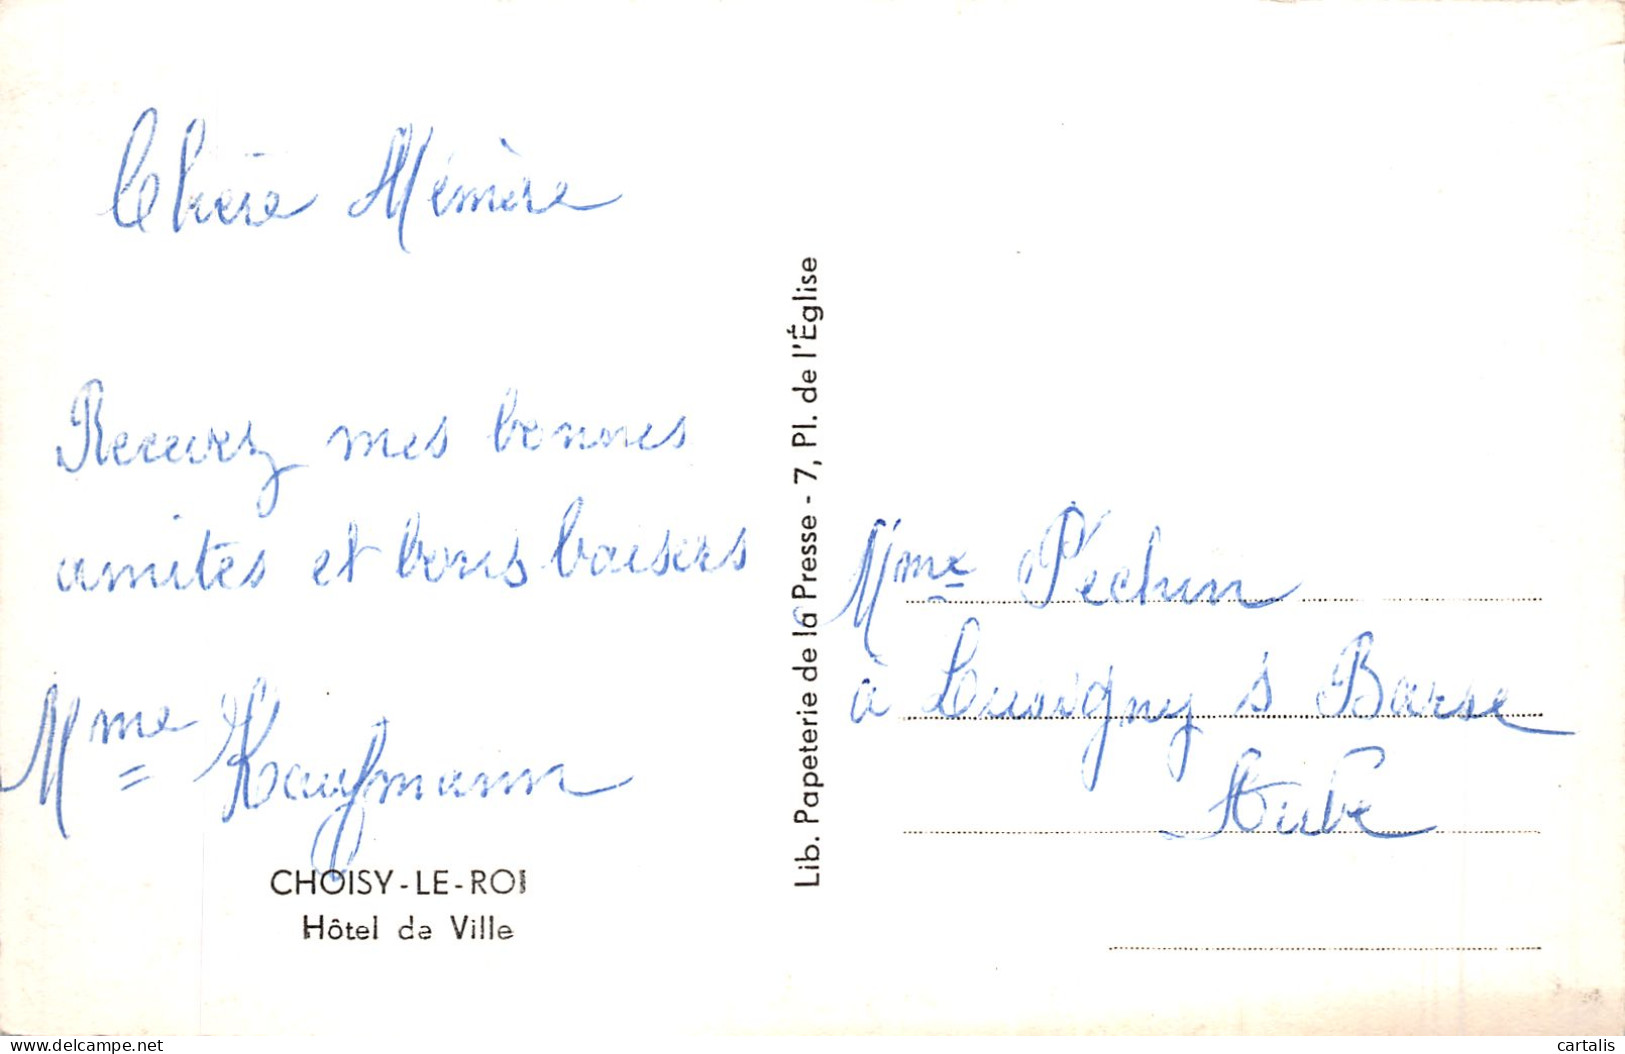 Chère Mémère
Recevez mes bonnes
amités et bons baisers
Mme Kaufmann
CHOISY-LE-ROI
Hôtel de Ville
Lib. Papeterie de la Presse - 7, Pl. de l'Église
Mme Péchin
à Lusigny s Barse
Aube
cartalis
delcampe.net